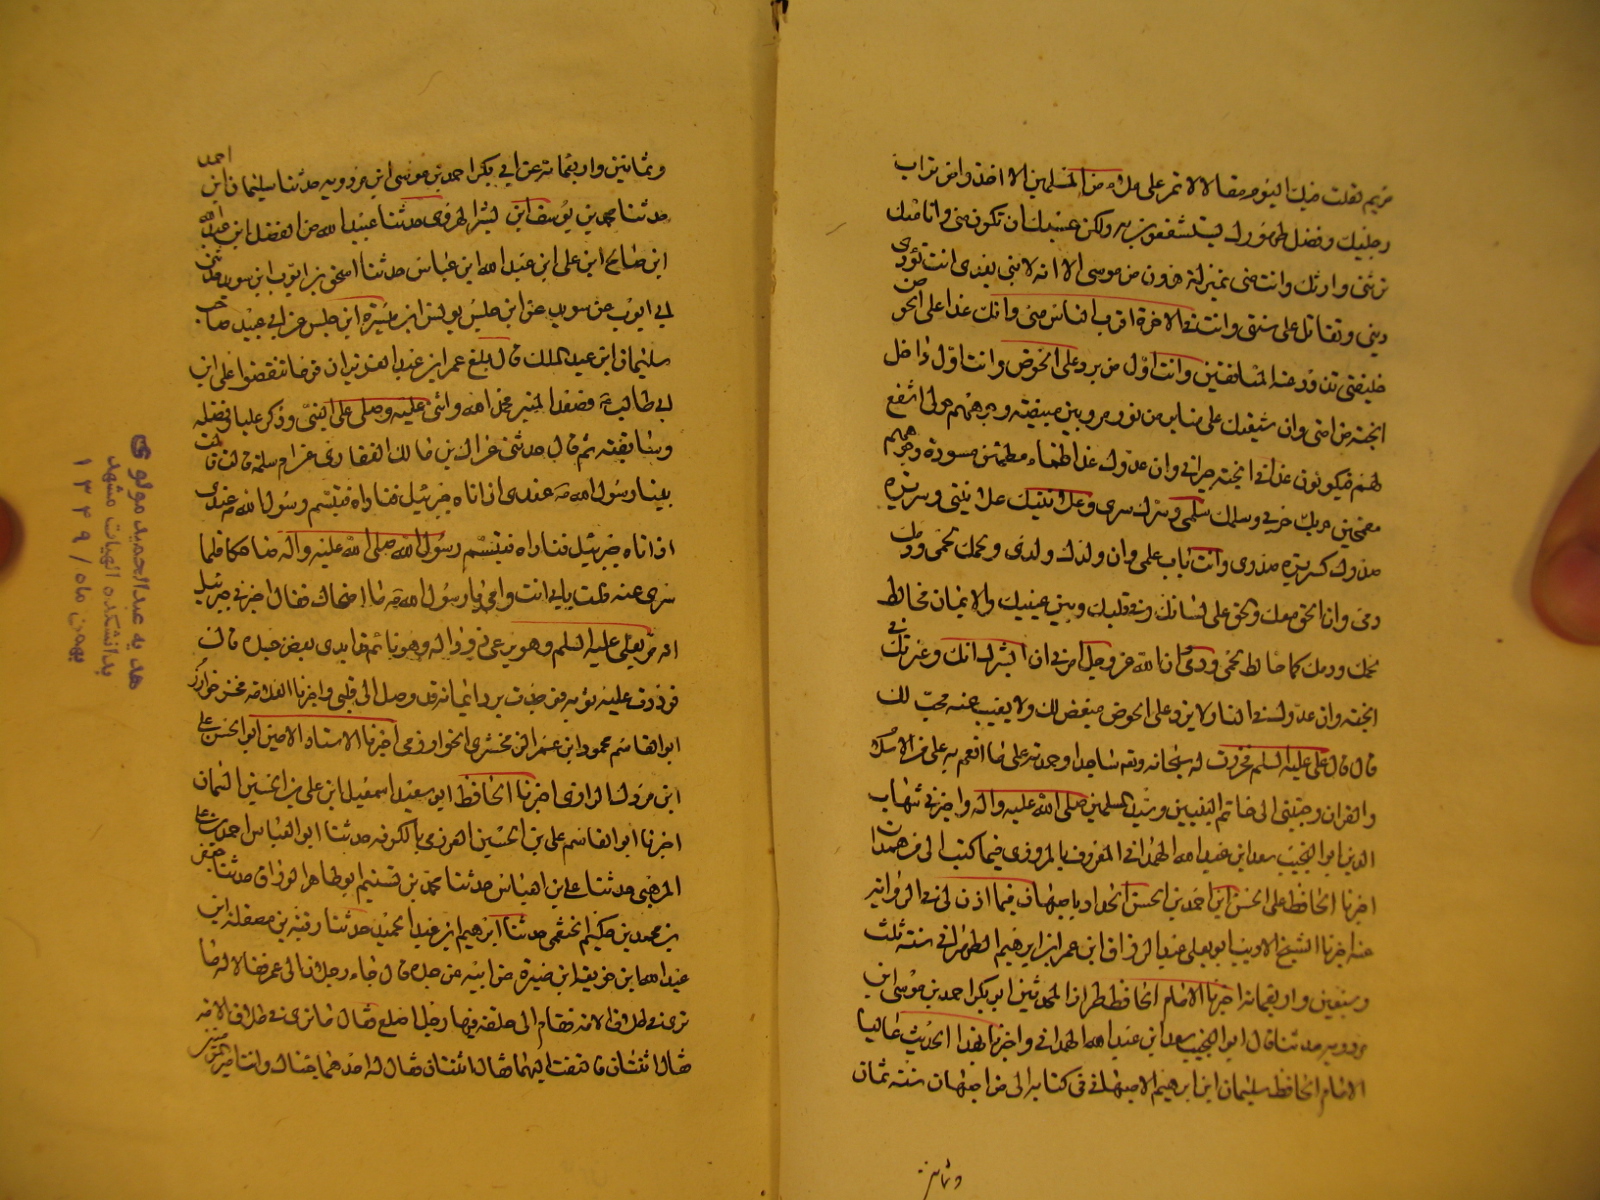 مريم لقلت فيك اليوم مقالا لا تمر على ملاء من المسلمين الا اخذوا من تراب
رجليك وفضل طهورك يستشفون به ولكن حسبك ان تكون مني وانا منك
ترثني وارثك وانت مني بمنزلة هرون من موسى الا انه لا نبي بعدى انت تؤدى
ديني وتقاتل على سنتي وانت في الاخرة اقرب الناس مني وانك غدا على الحوض
خليفتي تذود عنه المنافقين وانت اول من يرد على الحوض وانت اول داخل
الجنة من امتي وان شيعتك على منابر من نور مرويين مبيضة وجوههم حولى اشفع
لهم فيكونون غدا في الجنة جيراني وان عدوك غدا ظماء مظمئين مسودة وجوههم
مقمحين حربك حربي وسلمك سلمي وسرك سرى وعلانيتك علانيتي وسريرة
صدرك كسريرة صدرى وانت باب علمي وان ولدك ولدى ولحمك لحمي ودمك
دمى وان الحق معك والحق على لسانك وفي قلبك وبين عينيك والايمان مخالط
لحمك ودمك كما خالط لحمي ودمي وان الله عز وجل امرنى ان ابشرك انك وعترتك في
الجنة وان عدوك في النار لا يرد على الحوض مبغض لك ولا يغيب عنه محب لك
قال قال علي عليه السلم فخررت له سبحانه وتعه ساجدا وحمدته على ما انعم به علي من الاسلام
والقران وحببني الى خاتم النبيين وسيد المسلمين صلى الله عليه واله واخبرني شهاب
الدين ابو النجيب سعد ابن عبد الله الهمداني المعروف بالمروزى فيما كتب الى من همدان
اخبرنا الحافظ على الحسن ابن احمد بن الحسن الحداد باصبهان فيما اذن لى في الرواية
عنه اخبرنا الشيخ الاديب ابو يعلى عبد الرزاق ابن عمر ابن ابرهيم الطهراني سنة ثلث
وسبعين واربعمائة اخبرنا الامام الحافظ طراز المحدثين ابو بكر احمد بن موسى ابن
مردويه حدثنا قال ابو النجيب سعد ابن عبد الله الهمداني واخبرنا بهذا الحديث عاليا
الامام الحافظ سليمان ابن ابرهيم الاصبهاني في كتابه الى من اصبهان سنة ثمان
وثمانين
وثمانين واربعمائة عن ابي بكر احمد بن موسى ابن مردويه حدثنا سليمان ابن احمد
حدثنا محمد بن يوسف ابن بشر الهروى حدثنا عبيد الله من الفضل ابن عبد الله
ابن صالح ابن على ابن عبد الله ابن عباس حدثنا اسحق بن ايوب ابن سويد حدثني
ابي ايوب بن سويد عن ابن حلبس يونس ابن ميسرة ابن حلبس عن ابي عبيد صاحب
سليمان ابن عبد الملك قال بلغ عمر ابن عبد العزيز ان قوما تنقصوا على ابن
ابي طالب فصعد المنبر فحمد الله واثنى عليه وصلى على النبي وذكر عليا وفضله
وسابقته ثم قال حدثني عراك بن مالك الغفارى عن ام سلمة قالت
بينا رسول الله عندى اذ اتاه جبرئيل فناداه فتبسم رسول الله عندى
اذ اتاه جبرئيل فناداه فتبسم رسول الله صلى الله عليه واله ضاحكا فلما
سرى عنه قلت بابي انت وامي يا رسول الله ما اضحكك فقال اخبرني جبرئيل
انه مر بعلي عليه السلم وهو يرعى ذودا له وهو نائم قد ابدى بعض جسده قال
فرددت عليه ثوبه فوجدت برد ايمانه قد وصل الى قلبي واخبرنا العلامة فخر خوارزم
ابو القاسم محمود ابن عمر الزمخشرى الخوارزمى اخبرنا الاستاد الامين ابو الحسن علي
ابن مردك الرازى اخبرنا الحافظ ابو سعيد اسمعيل ابن على بن الحسين السمان
اخبرنا ابو القاسم على بن الحسين العرزمى بالكوفة حدثنا ابو العباس احمد بن علي
المرهبي حدثنا علي ابن العباس حدثنا محمد بن تسنيم ابو طاهر الوراق حدثنا جعفر
بن محمد بن حكيم الخثعمى حدثنا ابرهيم ابن عبد الحميد حدثنا رقبة بن مصقلة ابن
عبد الله ابن خويعة ابن صبرة عن ابيه عن جده قال جاء رجلان الى عمر فقالا له ما
ترى في طلاق الامة فقام الى حلقة فيها رجل اصلع فقال ما ترى في طلاق الامة
فقال اثنتان فالتفت اليهما فقال اثنتان فقال له احدهما جئناك وانت امير المؤمنين
هديه عبدالحميد مولوى
بدانشكده الهيات مشهد
بهمن ماه / ١٣٤٩